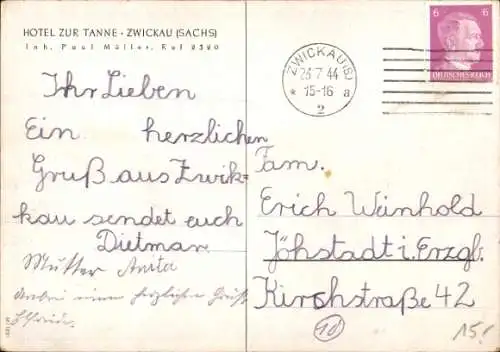 HOTEL ZUR TANNE · ZWICKAU (SACHS)
Inh. Paul Müller, Ruf 2320
Ihr Lieben
Ein herzlichen
Gruß aus Zwik-
kau sendet euch
Dietmar
Mutter Anita
einen herzlichen Gruß
ZWICKAU (S)
26.7.44
* 15-16 a
2
6 6
DEUTSCHES REICH
Fam.
Erich Weinhold
Jöhstadt i. Erzgb.
Kirchstraße 42
10
15.-